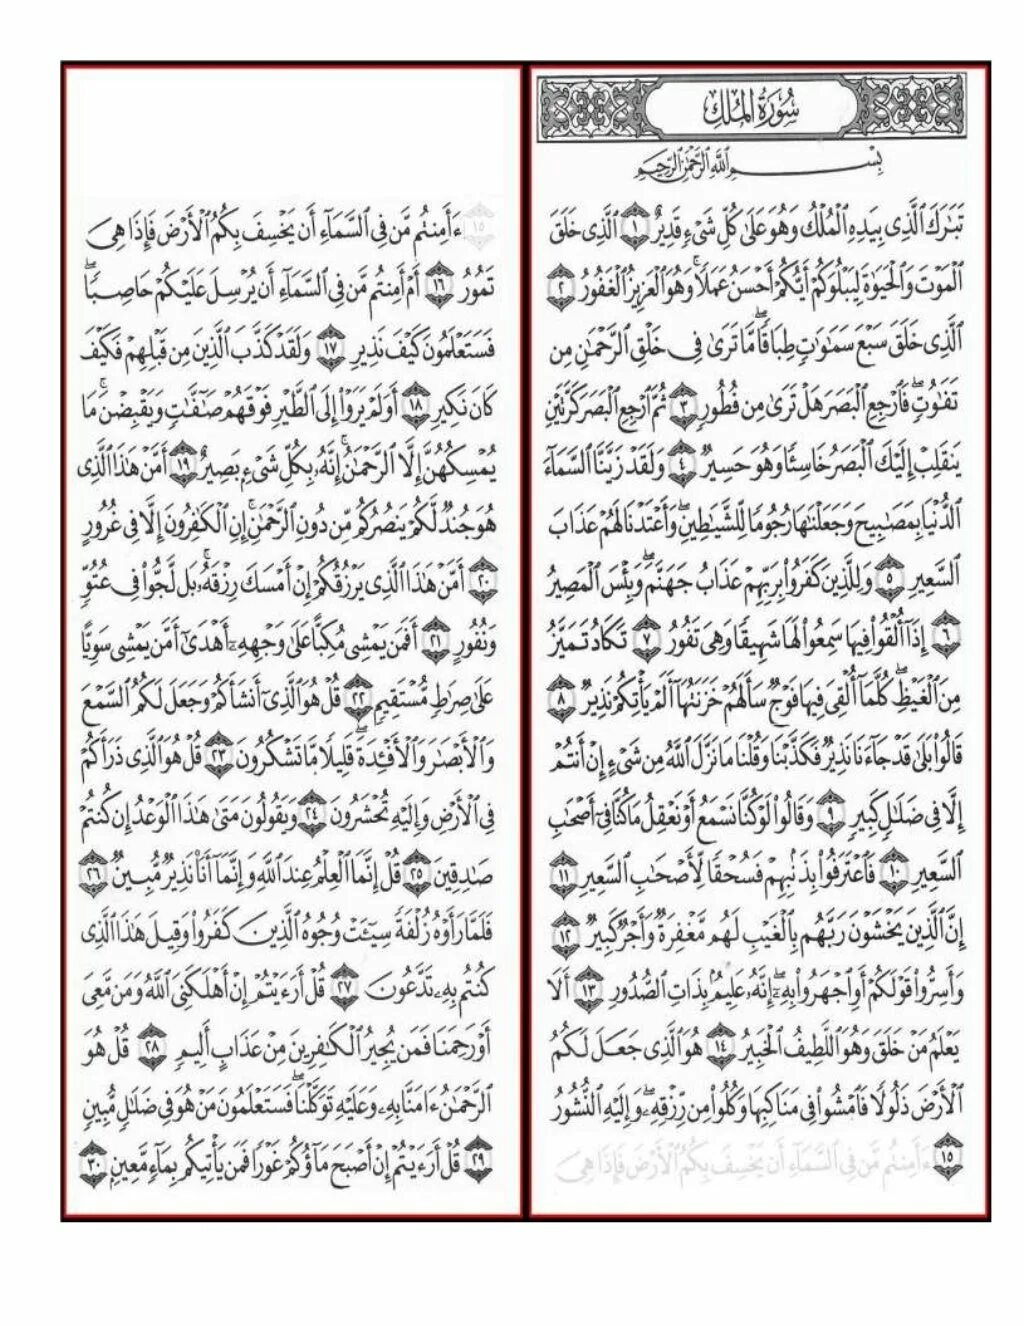 سُورَةُ المُلْكِ
بِسْمِ اللَّهِ الرَّحْمَٰنِ الرَّحِيمِ
تَبَٰرَكَ ٱلَّذِى بِيَدِهِ ٱلْمُلْكُ وَهُوَ عَلَىٰ كُلِّ شَىْءٍ قَدِيرٌ ١ ٱلَّذِى خَلَقَ
ٱلْمَوْتَ وَٱلْحَيَوٰةَ لِيَبْلُوَكُمْ أَيُّكُمْ أَحْسَنُ عَمَلًا ۚ وَهُوَ ٱلْعَزِيزُ ٱلْغَفُورُ ٢
ٱلَّذِى خَلَقَ سَبْعَ سَمَٰوَٰتٍ طِبَاقًا ۖ مَّا تَرَىٰ فِى خَلْقِ ٱلرَّحْمَٰنِ مِن
تَفَٰوُتٍ ۖ فَٱرْجِعِ ٱلْبَصَرَ هَلْ تَرَىٰ مِن فُطُورٍ ٣ ثُمَّ ٱرْجِعِ ٱلْبَصَرَ كَرَّتَيْنِ
يَنقَلِبْ إِلَيْكَ ٱلْبَصَرُ خَاسِئًا وَهُوَ حَسِيرٌ ٤ وَلَقَدْ زَيَّنَّا ٱلسَّمَآءَ
ٱلدُّنْيَا بِمَصَٰبِيحَ وَجَعَلْنَٰهَا رُجُومًا لِّلشَّيَٰطِينِ ۖ وَأَعْتَدْنَا لَهُمْ عَذَابَ
ٱلسَّعِيرِ ٥ وَلِلَّذِينَ كَفَرُوا۟ بِرَبِّهِمْ عَذَابُ جَهَنَّمَ ۖ وَبِئْسَ ٱلْمَصِيرُ
٦ إِذَآ أُلْقُوا۟ فِيهَا سَمِعُوا۟ لَهَا شَهِيقًا وَهِىَ تَفُورُ ٧ تَكَادُ تَمَيَّزُ
مِنَ ٱلْغَيْظِ ۖ كُلَّمَآ أُلْقِىَ فِيهَا فَوْجٌ سَأَلَهُمْ خَزَنَتُهَآ أَلَمْ يَأْتِكُمْ نَذِيرٌ ٨
قَالُوا۟ بَلَىٰ قَدْ جَآءَنَا نَذِيرٌ فَكَذَّبْنَا وَقُلْنَا مَا نَزَّلَ ٱللَّهُ مِن شَىْءٍ إِنْ أَنتُمْ
إِلَّا فِى ضَلَٰلٍ كَبِيرٍ ٩ وَقَالُوا۟ لَوْ كُنَّا نَسْمَعُ أَوْ نَعْقِلُ مَا كُنَّا فِىٓ أَصْحَٰبِ
ٱلسَّعِيرِ ١٠ فَٱعْتَرَفُوا۟ بِذَنۢبِهِمْ فَسُحْقًا لِّأَصْحَٰبِ ٱلسَّعِيرِ ١١
إِنَّ ٱلَّذِينَ يَخْشَوْنَ رَبَّهُم بِٱلْغَيْبِ لَهُم مَّغْفِرَةٌ وَأَجْرٌ كَبِيرٌ ١٢
وَأَسِرُّوا۟ قَوْلَكُمْ أَوِ ٱجْهَرُوا۟ بِهِۦٓ ۖ إِنَّهُۥ عَلِيمٌۢ بِذَاتِ ٱلصُّدُورِ ١٣ أَلَا
يَعْلَمُ مَنْ خَلَقَ وَهُوَ ٱللَّطِيفُ ٱلْخَبِيرُ ١٤ هُوَ ٱلَّذِى جَعَلَ لَكُمُ
ٱلْأَرْضَ ذَلُولًا فَٱمْشُوا۟ فِى مَنَاكِبِهَا وَكُلُوا۟ مِن رِّزْقِهِۦ ۖ وَإِلَيْهِ ٱلنُّشُورُ
١٥ ءَأَمِنتُم مَّن فِى ٱلسَّمَآءِ أَن يَخْسِفَ بِكُمُ ٱلْأَرْضَ فَإِذَا هِىَ
١٥ ءَأَمِنتُم مَّن فِى ٱلسَّمَآءِ أَن يَخْسِفَ بِكُمُ ٱلْأَرْضَ فَإِذَا هِىَ
تَمُورُ ١٦ أَمْ أَمِنتُم مَّن فِى ٱلسَّمَآءِ أَن يُرْسِلَ عَلَيْكُمْ حَاصِبًا ۖ
فَسَتَعْلَمُونَ كَيْفَ نَذِيرِ ١٧ وَلَقَدْ كَذَّبَ ٱلَّذِينَ مِن قَبْلِهِمْ فَكَيْفَ
كَانَ نَكِيرِ ١٨ أَوَلَمْ يَرَوْا۟ إِلَى ٱلطَّيْرِ فَوْقَهُمْ صَٰٓفَّٰتٍ وَيَقْبِضْنَ ۚ مَا
يُمْسِكُهُنَّ إِلَّا ٱلرَّحْمَٰنُ ۚ إِنَّهُۥ بِكُلِّ شَىْءٍۭ بَصِيرٌ ١٩ أَمَّنْ هَٰذَا ٱلَّذِى
هُوَ جُندٌ لَّكُمْ يَنصُرُكُم مِّن دُونِ ٱلرَّحْمَٰنِ ۚ إِنِ ٱلْكَٰفِرُونَ إِلَّا فِى غُرُورٍ
٢٠ أَمَّنْ هَٰذَا ٱلَّذِى يَرْزُقُكُمْ إِنْ أَمْسَكَ رِزْقَهُۥ ۚ بَل لَّجُّوا۟ فِى عُتُوٍّ
وَنُفُورٍ ٢١ أَفَمَن يَمْشِى مُكِبًّا عَلَىٰ وَجْهِهِۦٓ أَهْدَىٰٓ أَمَّن يَمْشِى سَوِيًّا
عَلَىٰ صِرَٰطٍ مُّسْتَقِيمٍ ٢٢ قُلْ هُوَ ٱلَّذِىٓ أَنشَأَكُمْ وَجَعَلَ لَكُمُ ٱلسَّمْعَ
وَٱلْأَبْصَٰرَ وَٱلْأَفْـِٔدَةَ ۖ قَلِيلًا مَّا تَشْكُرُونَ ٢٣ قُلْ هُوَ ٱلَّذِى ذَرَأَكُمْ
فِى ٱلْأَرْضِ وَإِلَيْهِ تُحْشَرُونَ ٢٤ وَيَقُولُونَ مَتَىٰ هَٰذَا ٱلْوَعْدُ إِن كُنتُمْ
صَٰدِقِينَ ٢٥ قُلْ إِنَّمَا ٱلْعِلْمُ عِندَ ٱللَّهِ وَإِنَّمَآ أَنَا۠ نَذِيرٌ مُّبِينٌ ٢٦
فَلَمَّا رَأَوْهُ زُلْفَةً سِيٓـَٔتْ وُجُوهُ ٱلَّذِينَ كَفَرُوا۟ وَقِيلَ هَٰذَا ٱلَّذِى
كُنتُم بِهِۦ تَدَّعُونَ ٢٧ قُلْ أَرَءَيْتُمْ إِنْ أَهْلَكَنِىَ ٱللَّهُ وَمَن مَّعِىَ
أَوْ رَحِمَنَا فَمَن يُجِيرُ ٱلْكَٰفِرِينَ مِنْ عَذَابٍ أَلِيمٍ ٢٨ قُلْ هُوَ
ٱلرَّحْمَٰنُ ءَامَنَّا بِهِۦ وَعَلَيْهِ تَوَكَّلْنَا ۖ فَسَتَعْلَمُونَ مَنْ هُوَ فِى ضَلَٰلٍ مُّبِينٍ
٢٩ قُلْ أَرَءَيْتُمْ إِنْ أَصْبَحَ مَآؤُكُمْ غَوْرًا فَمَن يَأْتِيكُم بِمَآءٍ مَّعِينٍۭ ٣٠